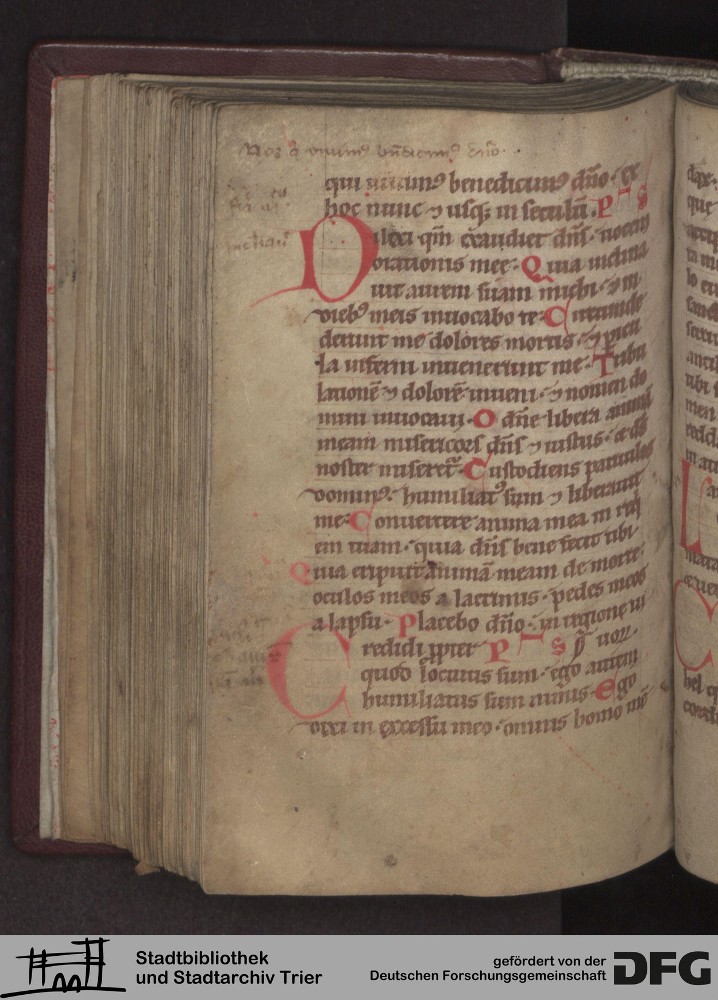 Nos q̇ viuim᷒ bn̄dicim᷒ dn̄o.
qui uiuim᷒ benedicim᷒ dn̄o. ex
hoc nunc ⁊ usq; in seculū. P S
Dilexi qm̄ exaudiet dn̄s. uocem
orationis mee. Quia inclina
uit aurem suam michi. ⁊ in
dieb᷒ meis inuocabo te. Circumde
derunt me dolores mortis. ⁊ pericu
la inferni inuenerunt me. Tribu
lationē ⁊ dolorē inueni. ⁊ nomen do
mini inuocaui. O dn̄e libera animā
meam misericors dn̄s ⁊ iustus. ⁊ ds̄
noster miseret᷑. Custodiens paruulos
domin᷒. humiliat᷒ sum ⁊ liberauit
me. Conuertere anima mea in requi
em tuam. quia dn̄s bene fecit tibi.
Quia eripuit animā meam de morte.
oculos meos a lacrimis. pedes meos
a lapsu. Placebo dn̄o. in regione ui
uoꝝ. P S
Credidi ꝓpter
quod locutus sum. ego autem
humiliatus sum nimis. Ego
dixi in excessu meo. omnis homo mē
Stadtbibliothek
und Stadtarchiv Trier
gefördert von der
Deutschen Forschungsgemeinschaft
DFG